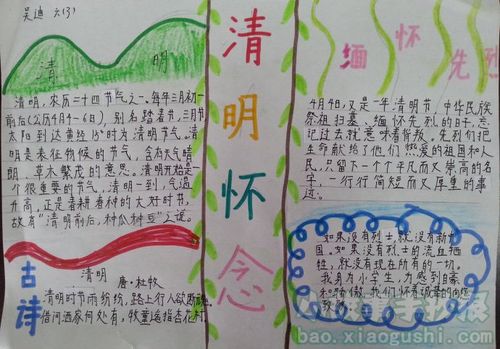 吴迪 六(3)
清 明
清明,农历二十四节气之一。每年三月初
前后(公历4月4-6日),别名踏春节,三月节
太阳到达黄经15°时为清明节气。清
明是表征物候的节气,含有天气晴
朗、草木繁茂的意思。清明开始是
个很重要的节气,清明一到,气温
升高,正是春耕春种的大好时节,
故有“清明前后,种瓜种豆”之说。
古诗
清明
唐·杜牧
清明时节雨纷纷,路上行人欲断魂
借问酒家何处有,牧童遥指杏花村
清明怀念
缅怀先烈
4月4日,又是一年清明节,中华民族
祭祖扫墓、缅怀先烈的日子。忘
记过去就意味着背叛。先烈们把
生命献给了他们热爱的祖国和人
民,只留下一个个平凡而又崇高的名
字,一行行简短而又厚重的事
迹。
如果没有烈士,就没有新中
国。如果没有烈士的流血牺
牲,就没有现在所有的一切。
我身为小学生,力感到自豪
bao.xiaogushi.com